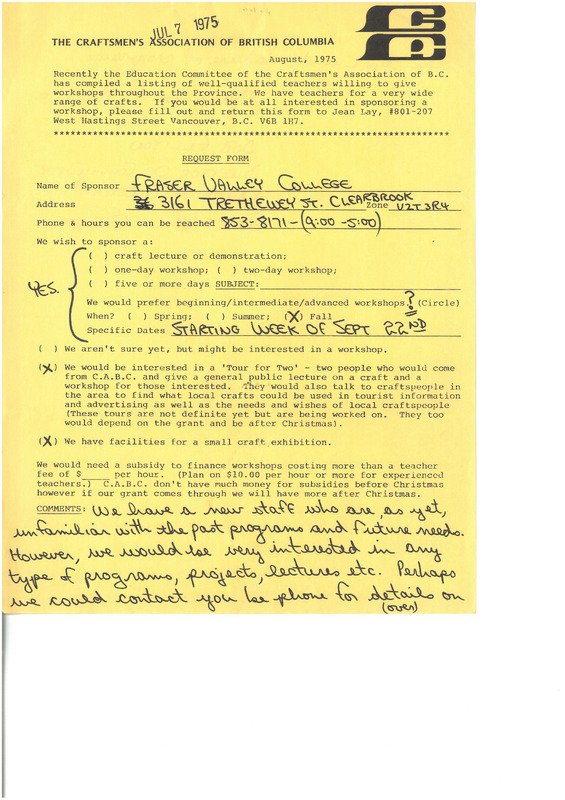 JUL 7 1975
CA
CA
THE CRAFTSMEN'S ASSOCIATION OF BRITISH COLUMBIA
August, 1975
Recently the Education Committee of the Craftsmen's Association of B.C.
has compiled a listing of well-qualified teachers willing to give
workshops throughout the Province. We have teachers for a very wide
range of crafts. If you would be at all interested in sponsoring a
workshop, please fill out and return this form to Jean Lay, #801-207
West Hastings Street Vancouver, B.C. V6B 1H7.
************************************************************************
REQUEST FORM
Name of Sponsor FRASER VALLEY COLLEGE
Address 3161 TRETHEWEY ST. CLEARBROOK Zone V2T3R4
Phone & hours you can be reached 853-8171-(9:00-5:00)
We wish to sponsor a:
( ) craft lecture or demonstration;
( ) one-day workshop; ( ) two-day workshop;
YES. ( ) five or more days SUBJECT:
We would prefer beginning/intermediate/advanced workshops? (Circle)
When? ( ) Spring; ( ) Summer; (X) Fall
Specific Dates STARTING WEEK OF SEPT 22ND
( ) We aren't sure yet, but might be interested in a workshop.
(X) We would be interested in a 'Tour for Two' - two people who would come
from C.A.B.C. and give a general public lecture on a craft and a
workshop for those interested. They would also talk to craftspeople in
the area to find what local crafts could be used in tourist information
and advertising as well as the needs and wishes of local craftspeople
(These tours are not definite yet but are being worked on. They too
would depend on the grant and be after Christmas).
(X) We have facilities for a small craft exhibition.
We would need a subsidy to finance workshops costing more than a teacher
fee of $____ per hour. (Plan on $10.00 per hour or more for experienced
teachers.) C.A.B.C. don't have much money for subsidies before Christmas
however if our grant comes through we will have more after Christmas.
COMMENTS: We have a new staff who are, as yet,
unfamiliar with the past programs and future needs.
However, we would be very interested in any
type of programs, projects, lectures etc. Perhaps
we could contact you be phone for details on
(over)